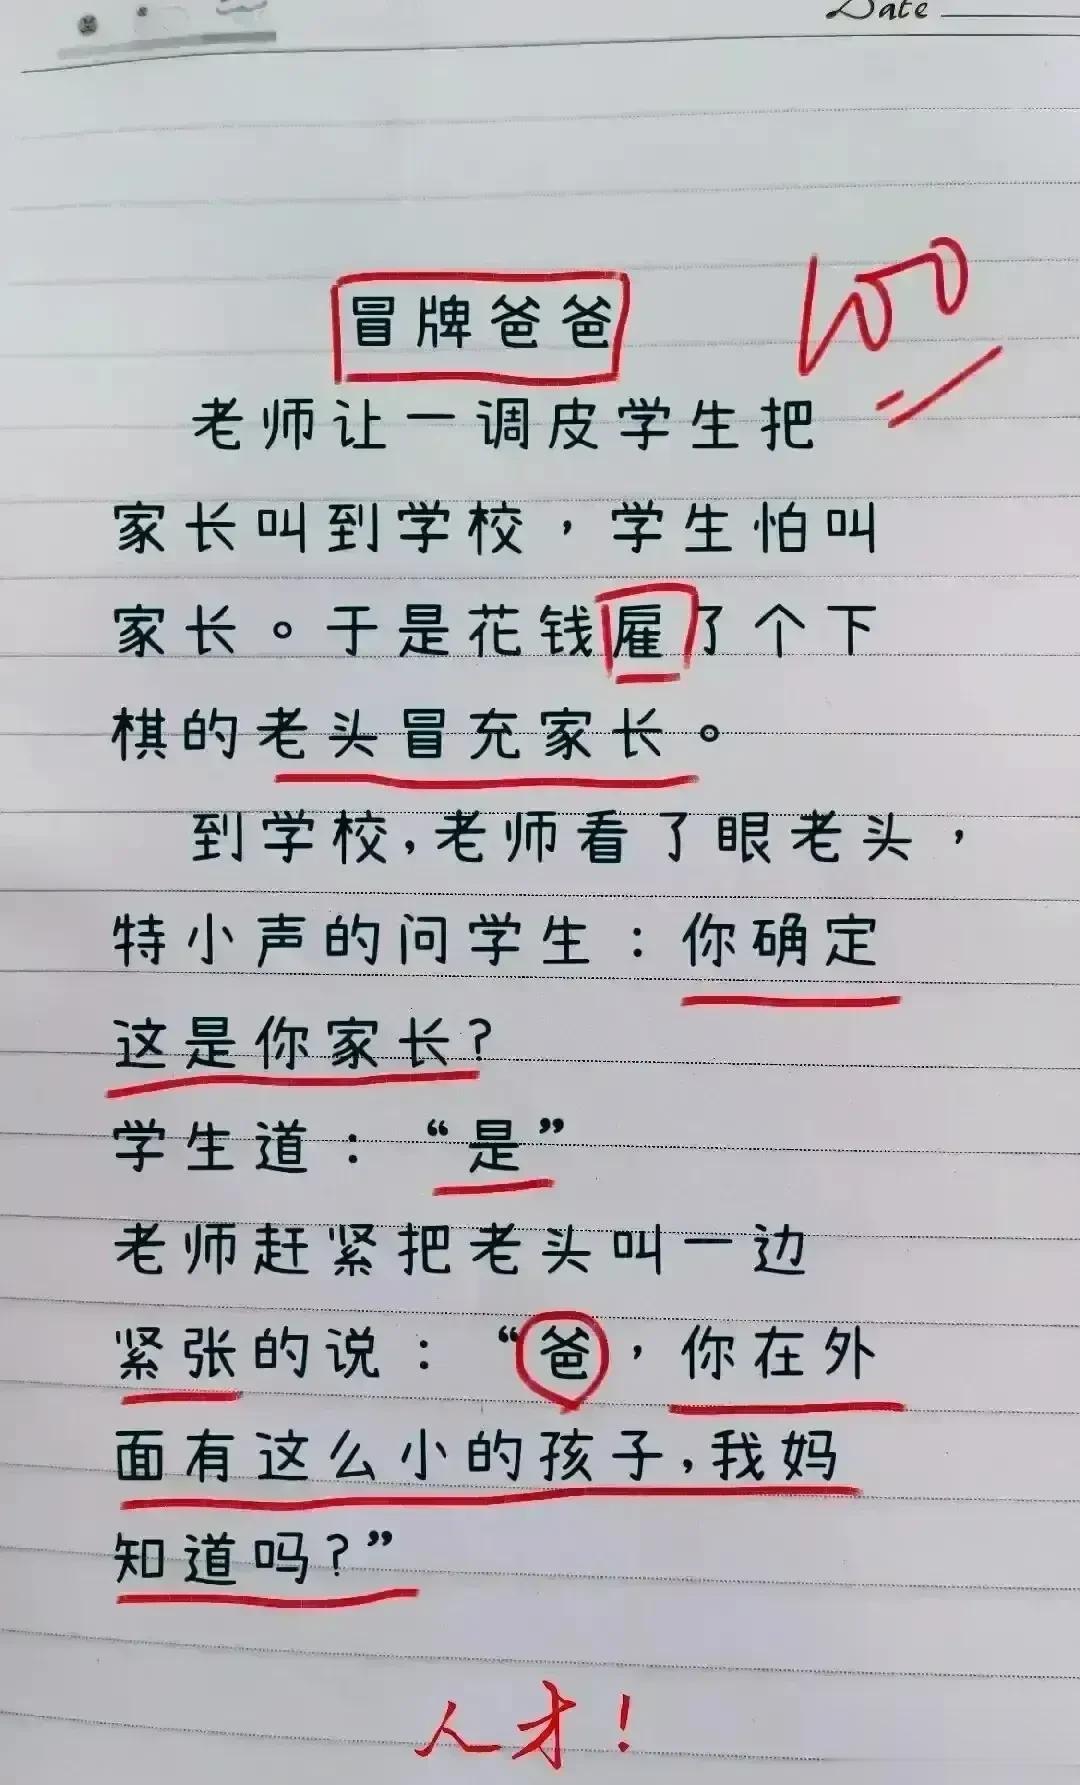 Date
冒牌爸爸
100
老师让一调皮学生把
家长叫到学校，学生怕叫
家长。于是花钱雇了个下
棋的老头冒充家长。
到学校,老师看了眼老头，
特小声的问学生：你确定
这是你家长?
学生道：“是”
老师赶紧把老头叫一边
紧张的说：“爸，你在外
面有这么小的孩子,我妈
知道吗?”
人才！